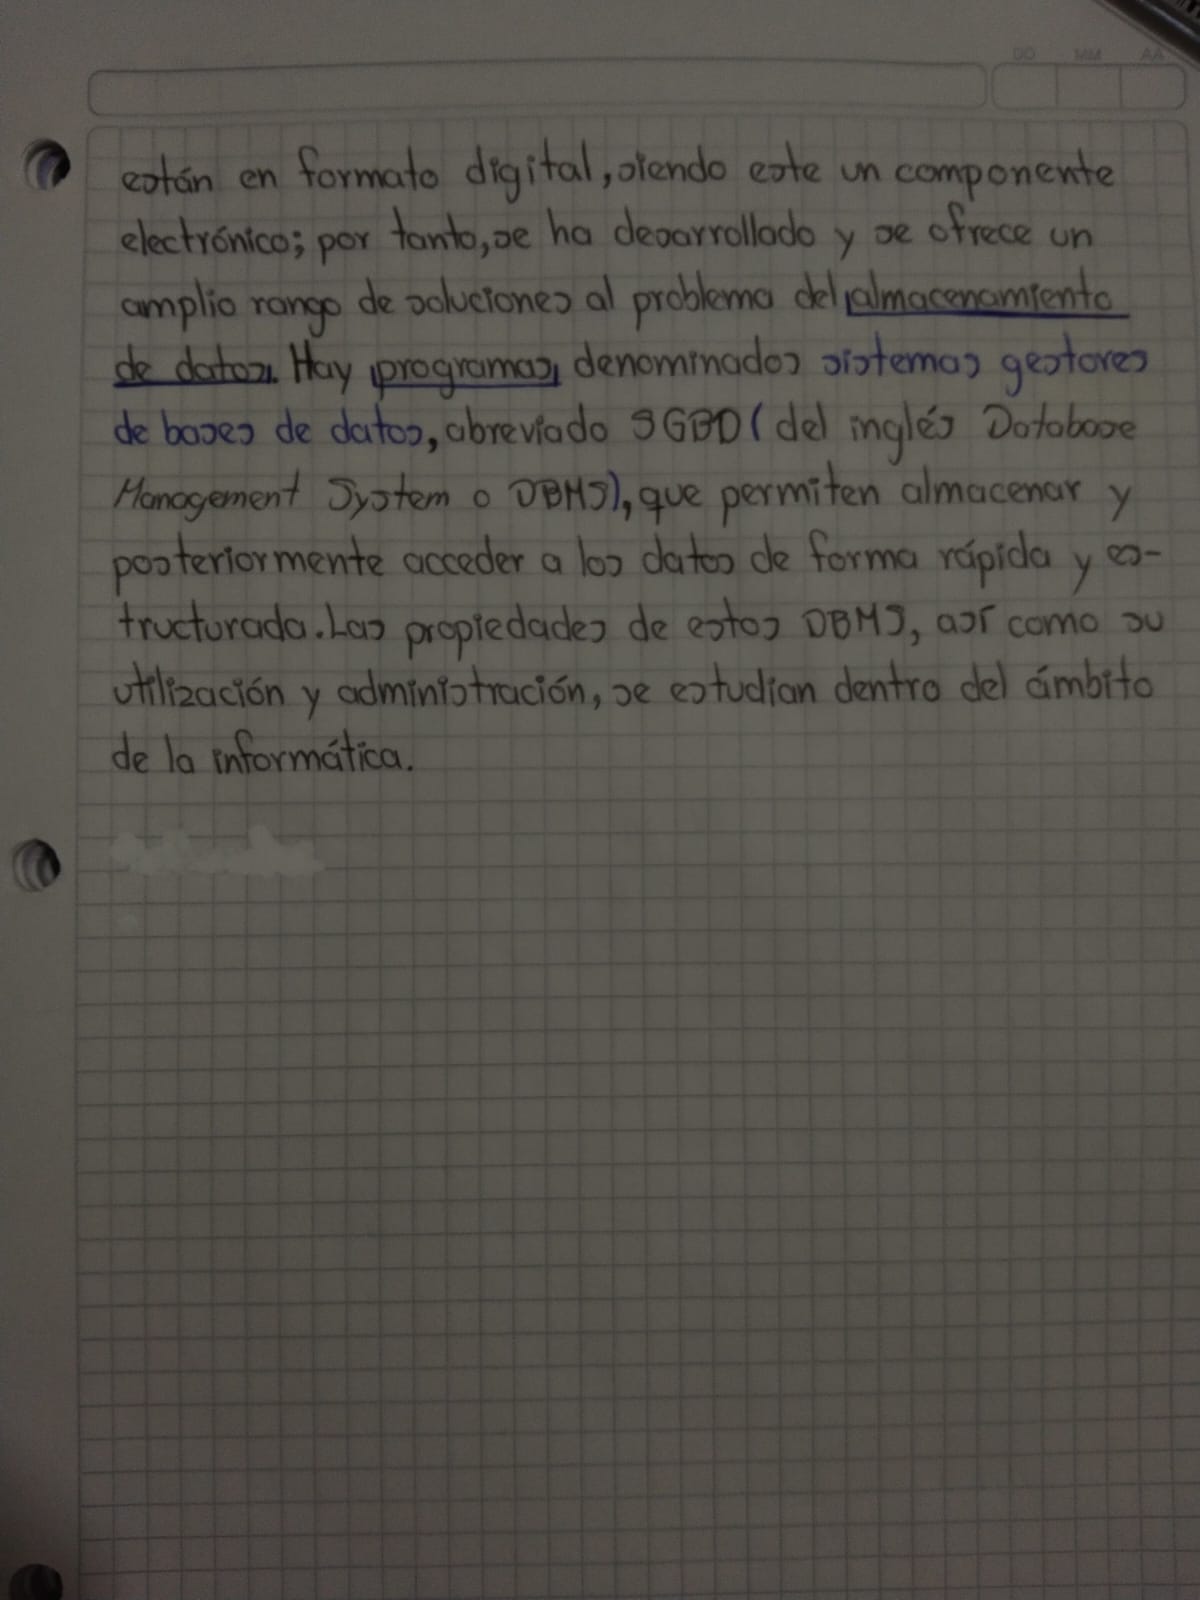 DD MM AA
están en formato digital, siendo este un componente
electrónico; por tanto, se ha desarrollado y se ofrece un
amplio rango de soluciones al problema del almacenamiento
de datos. Hay programas, denominados sistemas gestores
de bases de datos, abreviado SGBD (del inglés Database
Management System o DBMS), que permiten almacenar y
posteriormente acceder a los datos de forma rápida y es-
tructurada. Las propiedades de estos DBMS, así como su
utilización y administración, se estudian dentro del ámbito
de la informática.